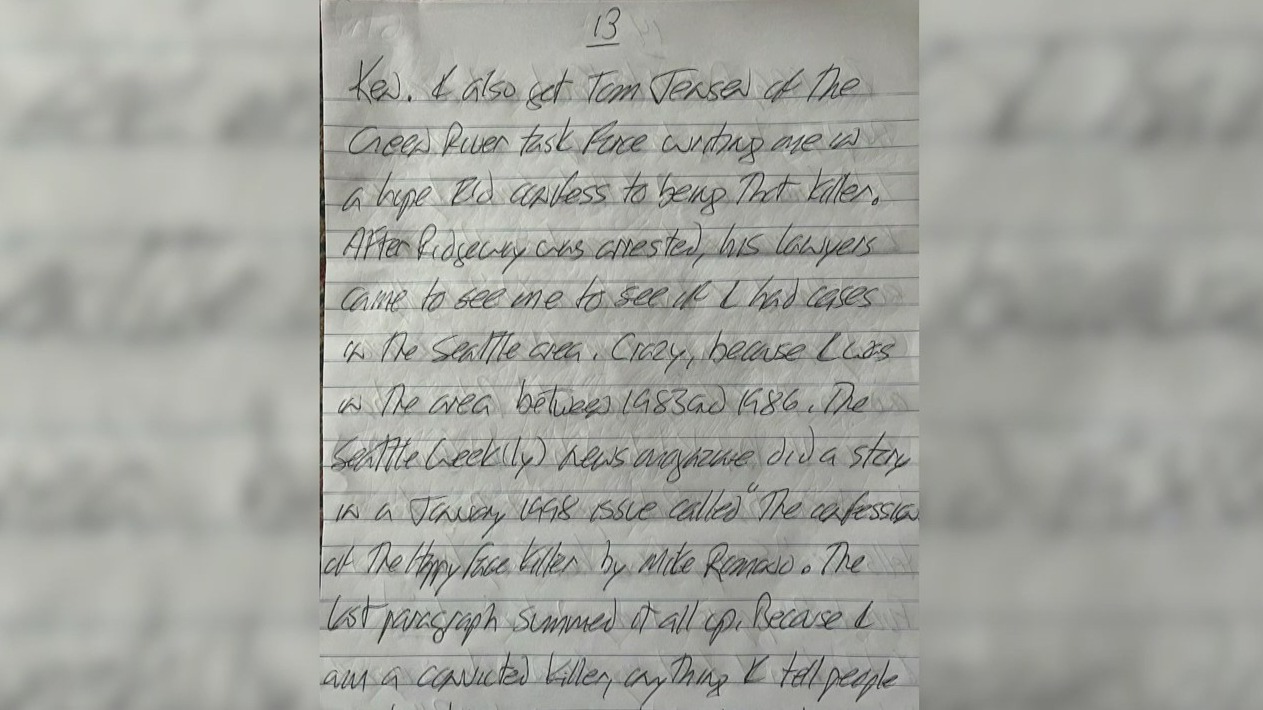 13
Ken. I also get Tom Jensen of the
Green River task force writing me in
a hope I'd confess to being that killer.
After Ridgeway was arrested, his lawyers
came to see me to see if I had cases
in the Seattle area. Crazy, because I was
in the area between 1983 and 1986. The
Seattle Week(ly) news magazine did a story
in a January 1998 issue called "The confession
of the Happy Face Killer by Mike Romano. The
last paragraph summed it all up. Because I
am a convicted killer, anything I tell people